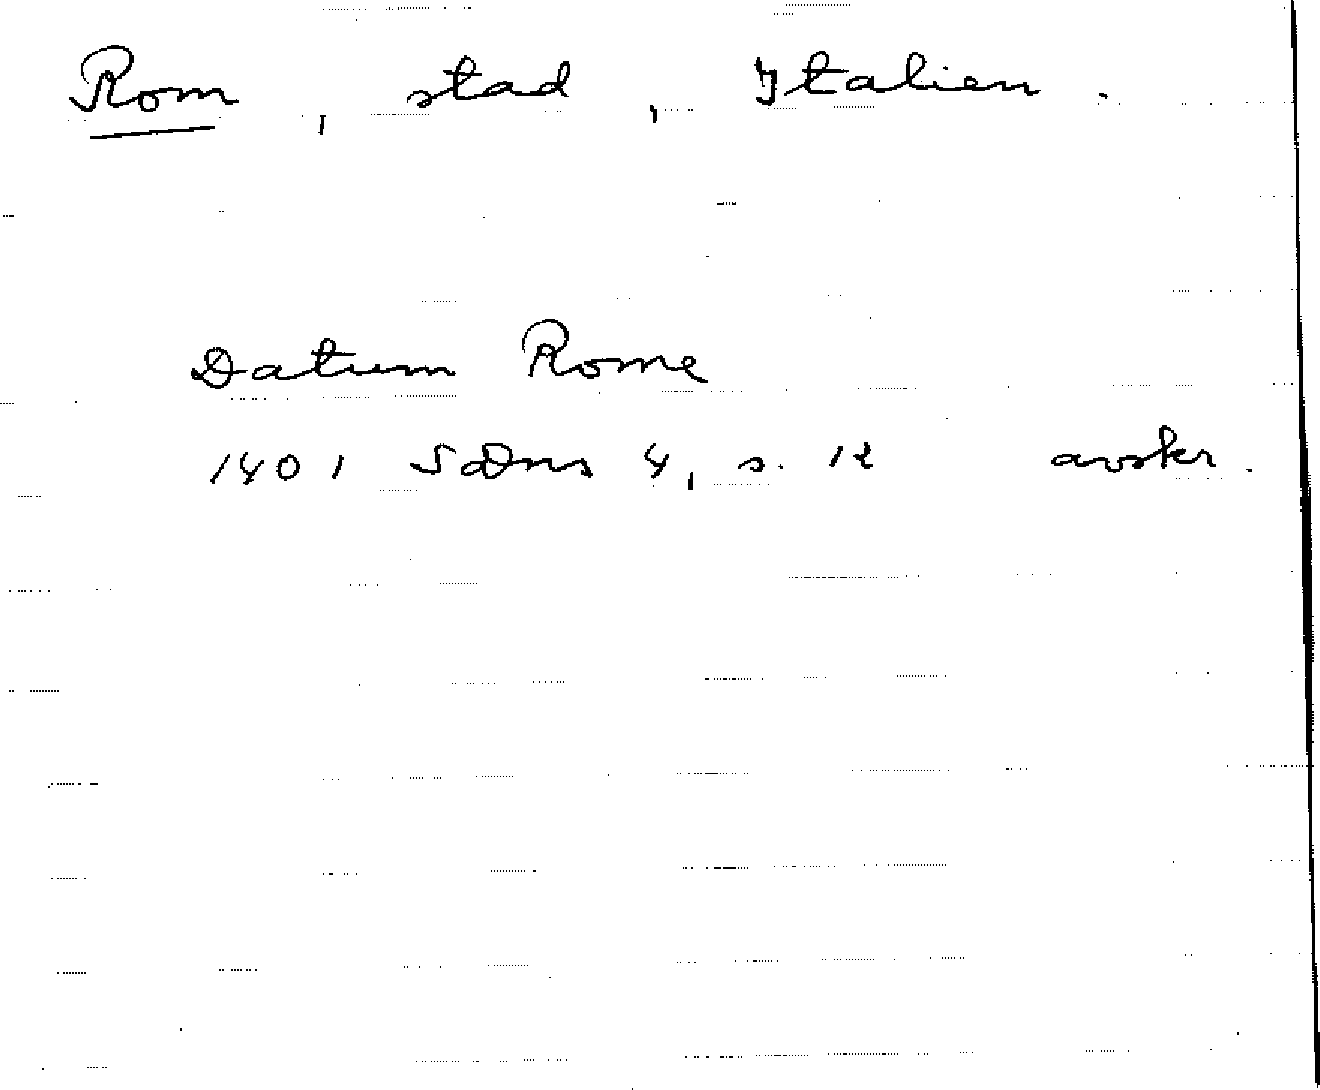 Rom, stad, Italien.
Datum Rome
1401 SDns 4, s. 12 avskr.